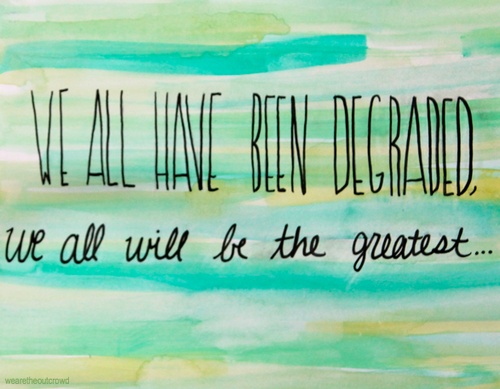 WE ALL HAVE BEEN DEGRADED,
we all will be the greatest...
wearetheoutcrowd